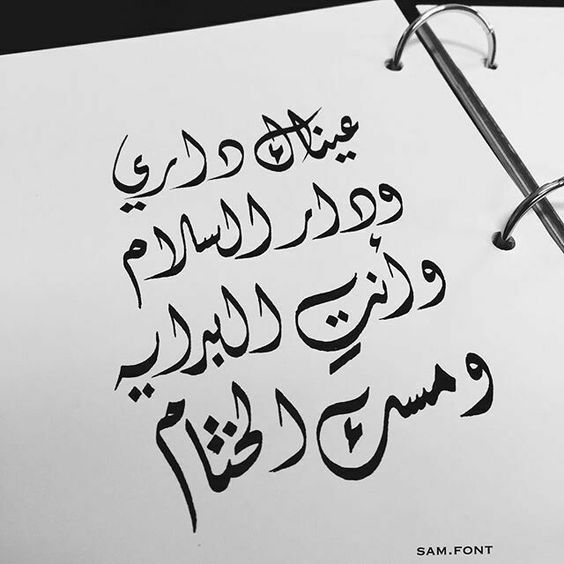 عيناك داري
ودار السلام
وأنتِ البدايه
ومسك الختام
SAM.FONT